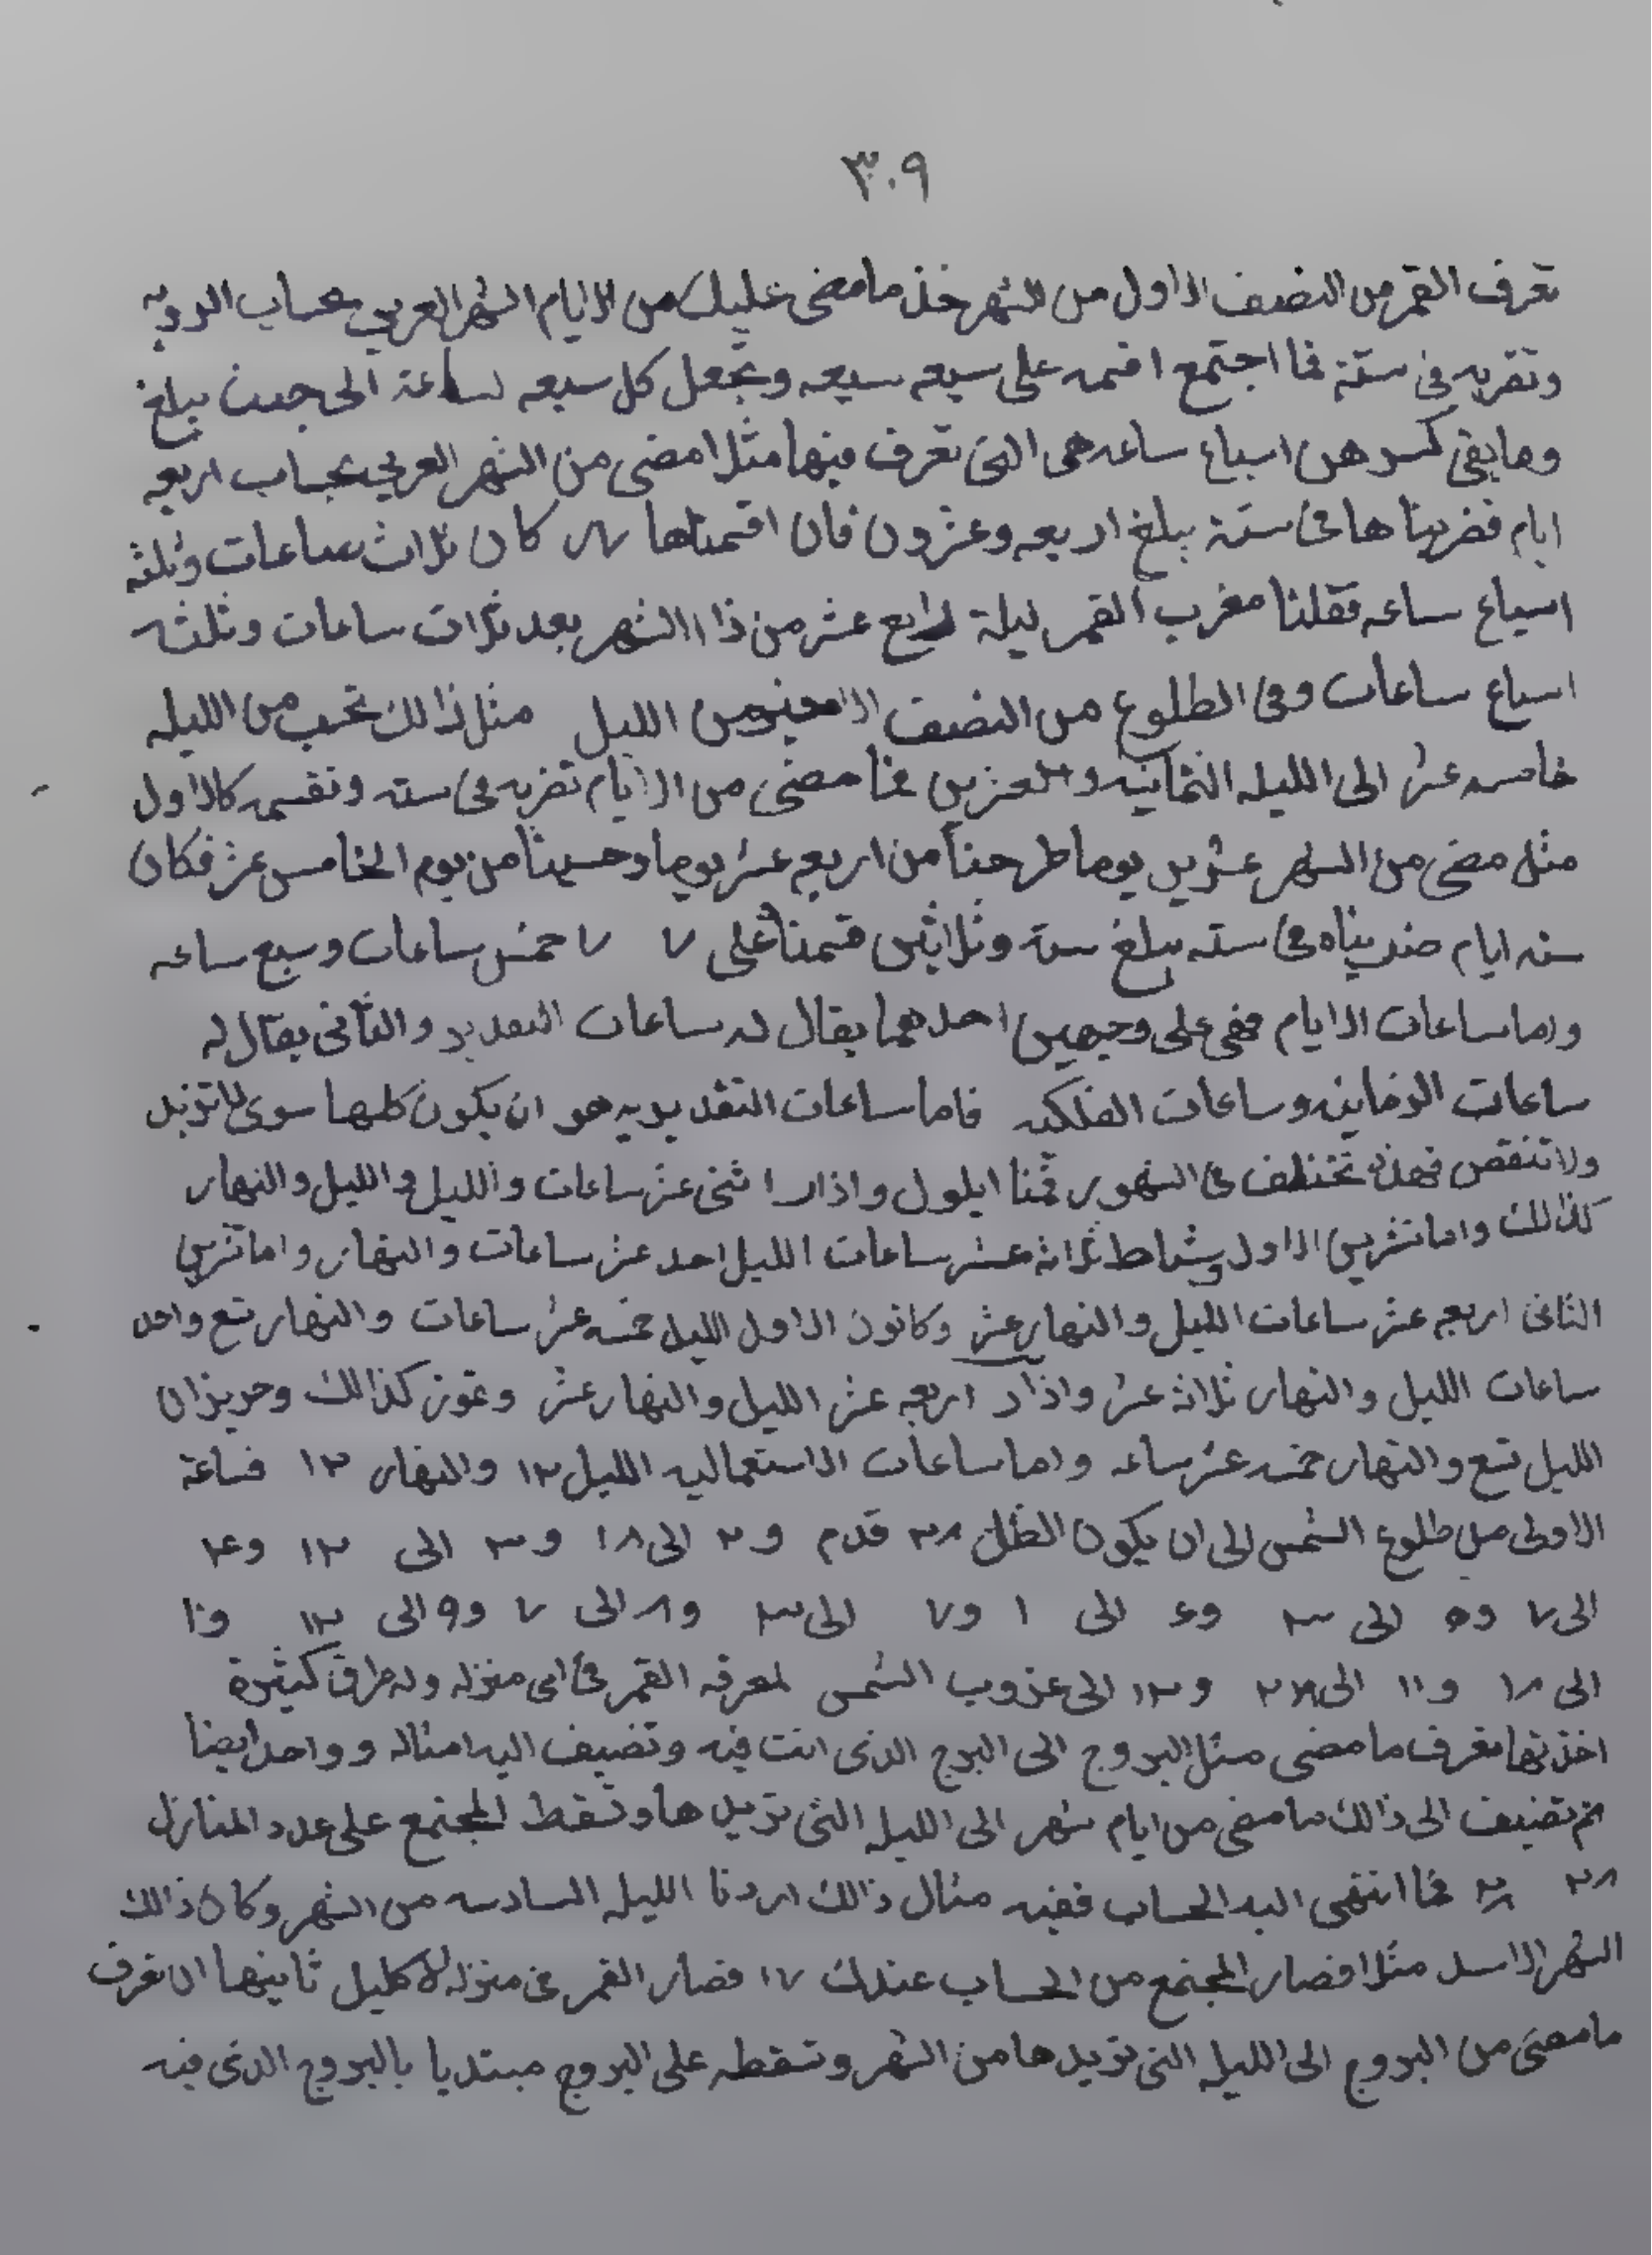 ٣٠٩
تعرف القمر من النصف الاول من الشهر خذ ما مضى عليك من الايام الشهر العربي بحساب الرويه
وتضربه في ستة فما اجتمع اقسمه على سبعه سبعه وتجعل كل سبعه ساعة الى حيث يبلغ
وما بقى كسر هن اسباع ساعه هى التى تعرف فيها مثلا مضى من الشهر العربي بحساب اربعه
ايام فضربنا ها فى ستة يبلغ اربعه وعشرون فان اقسمناها ٧ كان ثلاث ساعات وثلثه
اسباع ساعه فقلنا مغرب القمر ليلة رابع عشر من ذا الشهر بعد ثلاث ساعات وثلثه
اسباع ساعات وفى الطلوع من النصف الاخير من الليل مثل ذالك تحسب من الليله
خامسه عشر الى الليله الثمانيه والعشرين فما مضى من الايام تضربه فى سته وتقسمه كالاول
مثله مضى من الشهر عشرين يوما طرحنا من اربعه عشر يوما وحسبنا من يوم الخامس عشر فكان
سته ايام ضربناه فى سته يبلغ ستة وثلاثين قسمناه على ٧ ٧ خمس ساعات وسبع ساعه
واما ساعات الايام فهى على وجهين احدهما يقال له ساعات التعديد والثانى يقال له
ساعات الزمانيه وساعات الفلكيه فاما ساعات التقديريه هو ان يكون كلها سوى لا تزيد
ولا تنقص فهذه تختلف فى الشهور فمنا ايلول واذار اثنى عشر ساعات والليل والليل والنهار
كذالك واما تشرين الاول وشباط ثلاثة عشر ساعات الليل احد عشر ساعات والنهار واما تشرين
الثانى اربعه عشر ساعات الليل والنهار عشر وكانون الاول الليل خمسه عشر ساعات والنهار تسع واحد
ساعات الليل والنهار ثلاثة عشر واذار اربعه عشر الليل والنهار عشر وتموز كذالك وحريزان
الليل تسع والنهار خمسه عشر ساعه واما ساعات الاستعماليه الليل ١٢ والنهار ١٢ فساعة
الاولى من طلوع الشمس الى ان يكون الظل ٢٨ قدم و ٢ الى ١٨ و ٣ الى ١٢ و ٤
الى ٧ و ٥ الى ٣ و ٦ الى ١ و ٧ الى ٣ و ٨ الى ٧ و ٩ الى ١٢ و ١٠
الى ١٨ و ١١ الى ٢٨ و ١٢ الى غروب الشمس لمعرفه القمر فى اى منزله وله طراق كثيرة
اخذتها تعرف ما مضى مثل البروج الى البرج الذى انت فيه وتضيف اليه امثاله وواحد ايضا
ثم تضيف الى ذالك ما مضى من ايام شهر الى الليله التى تريدها وتسقط المجتمع على عدد المنازل
٢٨ ٢٨ فما انتهى اليه الحساب ففيه مثال ذالك اردنا الليله السادسه من الشهر وكان ذالك
الشهر الاسد مثلا فصار المجتمع من الحساب عندك ١٧ فصار القمر فى منزله الاكليل ثانيها ان تعرف
ما مضى من البروج الى الليله التى تريدها من الشهر وتسقطه على البروج مبتديا بالبروج الذى فيه